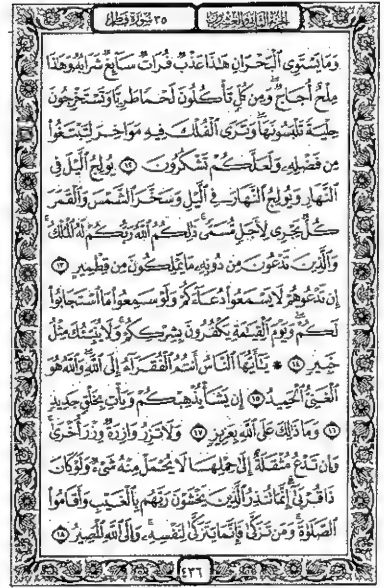 الجزء الثاني والعشرون
٣٥ سورة فاطر
وَمَا يَسْتَوِي الْبَحْرَانِ هَٰذَا عَذْبٌ فُرَاتٌ سَائِغٌ شَرَابُهُ وَهَٰذَا
مِلْحٌ أُجَاجٌ ۖ وَمِن كُلٍّ تَأْكُلُونَ لَحْمًا طَرِيًّا وَتَسْتَخْرِجُونَ
حِلْيَةً تَلْبَسُونَهَا ۖ وَتَرَى الْفُلْكَ فِيهِ مَوَاخِرَ لِتَبْتَغُوا
مِن فَضْلِهِ وَلَعَلَّكُمْ تَشْكُرُونَ ١٢ يُولِجُ اللَّيْلَ فِي
النَّهَارِ وَيُولِجُ النَّهَارَ فِي اللَّيْلِ وَسَخَّرَ الشَّمْسَ وَالْقَمَرَ
كُلٌّ يَجْرِي لِأَجَلٍ مُّسَمًّى ۚ ذَٰلِكُمُ اللَّهُ رَبُّكُمْ لَهُ الْمُلْكُ ۚ
وَالَّذِينَ تَدْعُونَ مِن دُونِهِ مَا يَمْلِكُونَ مِن قِطْمِيرٍ ١٣
إِن تَدْعُوهُمْ لَا يَسْمَعُوا دُعَاءَكُمْ وَلَوْ سَمِعُوا مَا اسْتَجَابُوا
لَكُمْ ۖ وَيَوْمَ الْقِيَامَةِ يَكْفُرُونَ بِشِرْكِكُمْ ۚ وَلَا يُنَبِّئُكَ مِثْلُ
خَبِيرٍ ١٤ ۞ يَا أَيُّهَا النَّاسُ أَنتُمُ الْفُقَرَاءُ إِلَى اللَّهِ ۖ وَاللَّهُ هُوَ
الْغَنِيُّ الْحَمِيدُ ١٥ إِن يَشَأْ يُذْهِبْكُمْ وَيَأْتِ بِخَلْقٍ جَدِيدٍ
١٦ وَمَا ذَٰلِكَ عَلَى اللَّهِ بِعَزِيزٍ ١٧ وَلَا تَزِرُ وَازِرَةٌ وِزْرَ أُخْرَىٰ ۚ
وَإِن تَدْعُ مُثْقَلَةٌ إِلَىٰ حِمْلِهَا لَا يُحْمَلْ مِنْهُ شَيْءٌ وَلَوْ كَانَ
ذَا قُرْبَىٰ ۗ إِنَّمَا تُنذِرُ الَّذِينَ يَخْشَوْنَ رَبَّهُم بِالْغَيْبِ وَأَقَامُوا
الصَّلَاةَ ۚ وَمَن تَزَكَّىٰ فَإِنَّمَا يَتَزَكَّىٰ لِنَفْسِهِ ۚ وَإِلَى اللَّهِ الْمَصِيرُ ١٨
٤٣٦